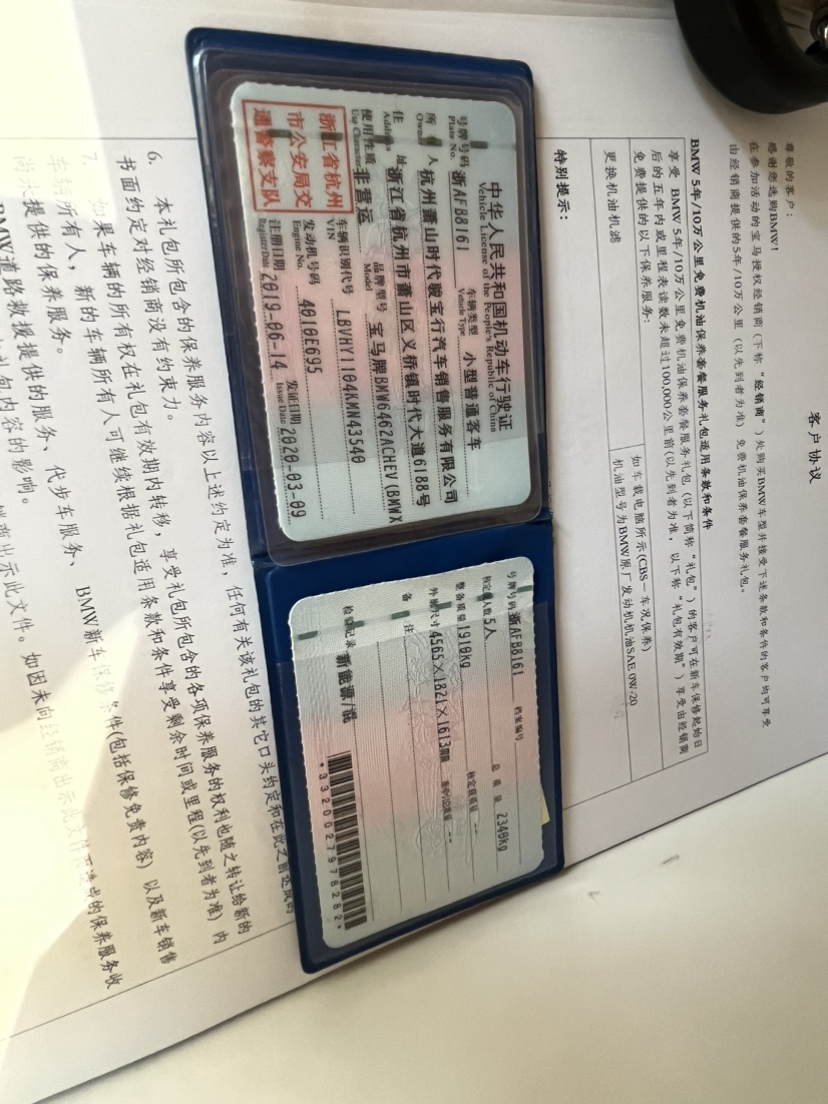 客户协议
尊敬的客户：
感谢您选购BMW！
在参加活动的宝马授权经销商（下称“经销商”）处购买BMW车型并接受下述条款和条件的客户均可享受
由经销商提供的5年/10万公里（以先到者为准）免费机油保养套餐服务礼包。
BMW 5年/10万公里免费机油保养套餐服务礼包适用条款和条件
享受 BMW 5年/10万公里免费机油保养套餐服务礼包（以下简称“礼包”）的客户可在新车保修起始日
后的五年内或里程表读数未超过100,000公里前(以先到者为准，以下称“礼包有效期”）享受由经销商
免费提供的以下保养服务：
更换机油机滤
如车载电脑所示(CBS－车况保养)
机油型号为BMW原厂发动机机油SAE 0W-20
特别提示：
中华人民共和国机动车行驶证
Vehicle License of the People's Republic of China
号牌号码 浙AFB8161 车辆类型 小型普通客车
Plate No. Vehicle Type
所有人 杭州萧山时代骏宝行汽车销售服务有限公司
Owner
住址 浙江省杭州市萧山区义桥镇时代大道6188号
Address
使用性质 非营运 品牌型号 宝马牌BMW6462ACHEV(BMWX
Use Character Model
浙江省杭州
市公安局交
通警察支队
车辆识别代号 LBVHY1104KMN43540
VIN
发动机号码 4010E695
Engine No.
注册日期 2019-06-14 发证日期 2020-03-09
Register Date Issue Date
号牌号码 浙AFB8161 档案编号
核定载人数 5人 总质量 2340kg
整备质量 1910kg 核定载质量 --
外廓尺寸 4565×1821×1613mm 准牵引总质量 --
备注
检验记录 新能源/混
*3320027978282*
6. 本礼包所包含的保养服务内容以上述约定为准，任何有关该礼包的其它口头约定和在此之前达成的
书面约定对经销商没有约束力。
7. 如果车辆的所有权在礼包有效期内转移，享受礼包所包含的各项保养服务的权利也随之转让给新的
车辆所有人，新的车辆所有人可继续根据礼包适用条款和条件享受剩余时间或里程(以先到者为准）内
尚未提供的保养服务。
BMW道路救援提供的服务、代步车服务、BMW新车保修条件(包括保修免责内容）以及新车销售
礼包内容的影响。
经销商出示此文件。如因未向经销商出示此文件而造成的保养服务收